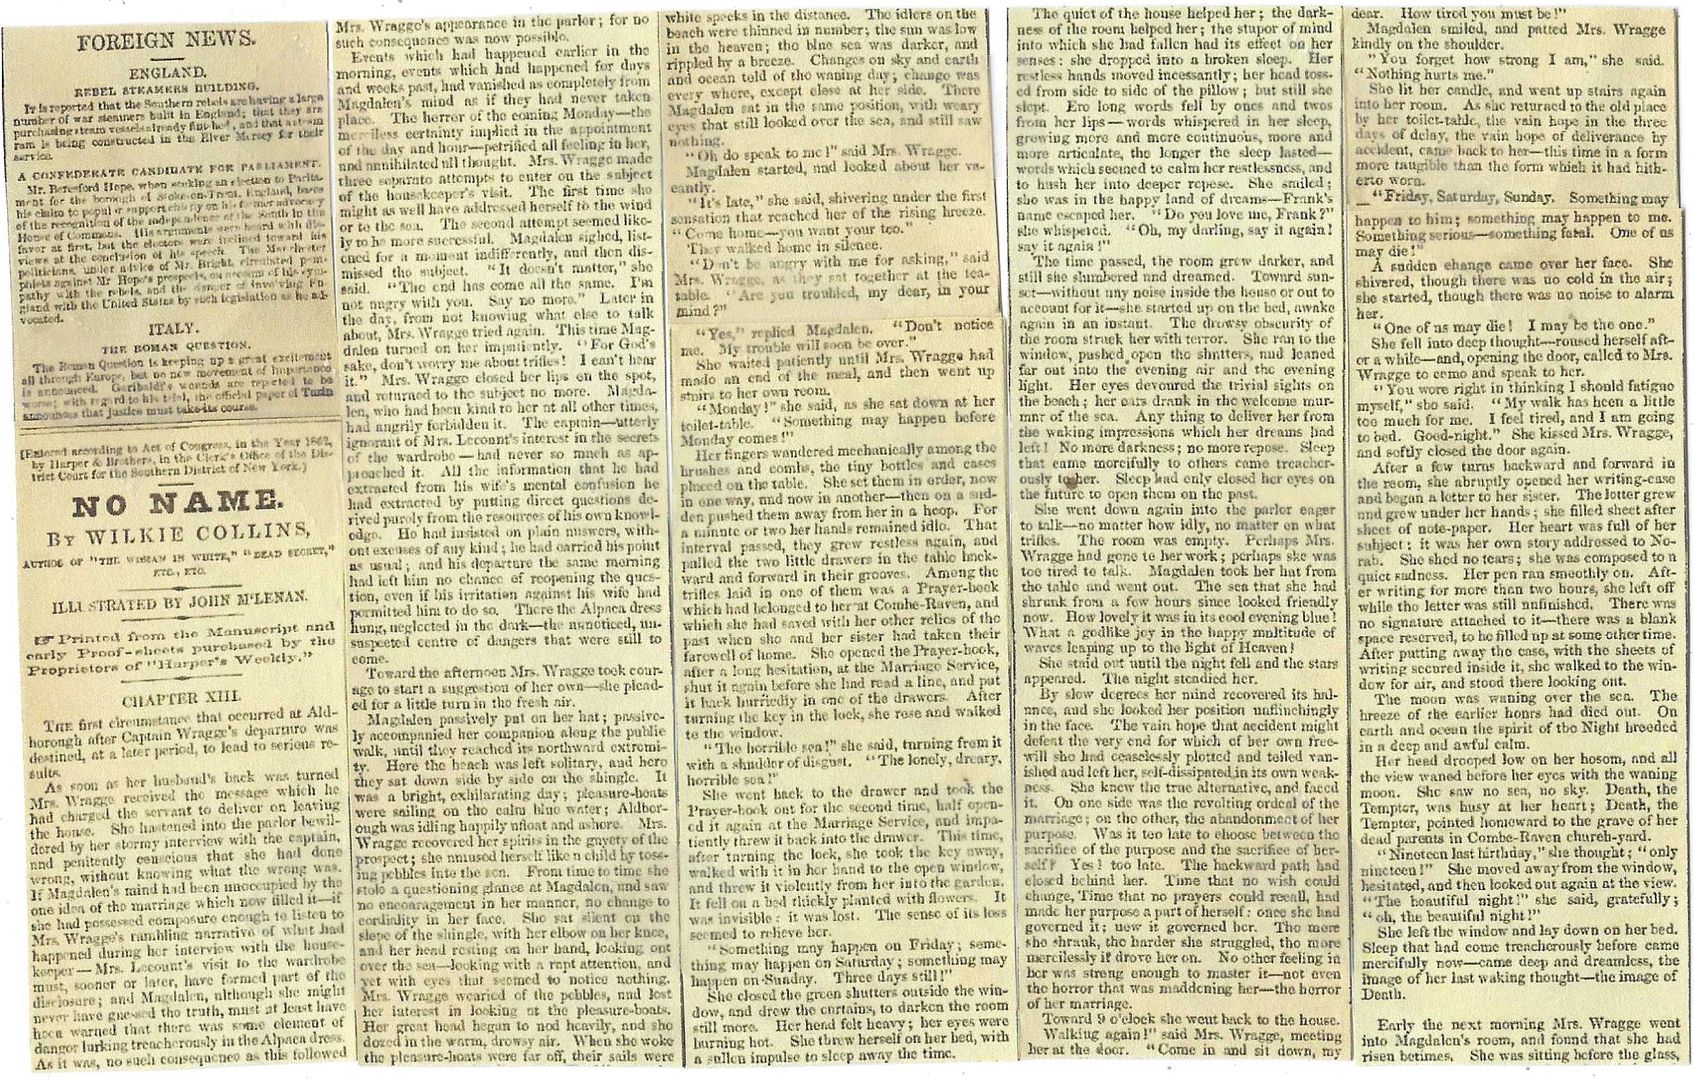 FOREIGN NEWS.
ENGLAND.
REBEL STEAMERS BUILDING.
It is reported that the Southern rebels are having a large
number of war steamers built in England; that they are
purchasing steam vessels already finished, and that a steam
ram is being constructed in the River Mersey for their
service.
A CONFEDERATE CANDIDATE FOR PARLIAMENT.
Mr. Beresford Hope, when seeking an election to Parlia-
ment for the borough of Stoke-on-Trent, England, bases
his claim to popular support chiefly on his former advocacy
of the recognition of the independence of the South in the
House of Commons. His arguments were heard with dis-
favor at first, but the electors were inclined toward his
views at the conclusion of his speech. The Manchester
politicians, under advice of Mr. Bright, circulated pam-
phlets against Mr Hope's prospects, on account of his sym-
pathy with the rebels, and the danger of involving En-
gland with the United States by such legislation as he ad-
vocated.
ITALY.
THE ROMAN QUESTION.
The Roman Question is keeping up a great excitement
all through Europe, but no new movement of importance
is announced. Garibaldi's wounds are reported to be
worse; with regard to his trial, the official paper of Turin
announces that justice must take its course.
[Entered according to Act of Congress, in the Year 1862,
by Harper & Brothers, in the Clerk's Office of the Dis-
trict Court for the Southern District of New York.]
NO NAME.
BY WILKIE COLLINS,
AUTHOR OF "THE WOMAN IN WHITE," "DEAD SECRET,"
ETC., ETC.
ILLUSTRATED BY JOHN M'LENAN.
☞ Printed from the Manuscript and
early Proof-sheets purchased by the
Proprietors of "Harper's Weekly."
CHAPTER XIII.
THE first circumstance that occurred at Ald-
borough after Captain Wragge's departure was
destined, at a later period, to lead to serious re-
sults.
As soon as her husband's back was turned
Mrs. Wragge received the message which he
had charged the servant to deliver on leaving
the house. She hastened into the parlor bewil-
dered by her stormy interview with the captain,
and penitently conscious that she had done
wrong, without knowing what the wrong was.
If Magdalen's mind had been unoccupied by the
one idea of the marriage which now filled it—if
she had possessed composure enough to listen to
Mrs. Wragge's rambling narrative of what had
happened during her interview with the house-
keeper—Mrs. Lecount's visit to the wardrobe
must, sooner or later, have formed part of the
disclosure; and Magdalen, although she might
never have guessed the truth, must at least have
been warned that there was some element of
danger lurking treacherously in the Alpaca dress.
As it was, no such consequence as this followed
Mrs. Wragge's appearance in the parlor; for no
such consequence was now possible.
Events which had happened earlier in the
morning, events which had happened for days
and weeks past, had vanished as completely from
Magdalen's mind as if they had never taken
place. The horror of the coming Monday—the
merciless certainty implied in the appointment
of the day and hour—petrified all feeling in her,
and annihilated all thought. Mrs. Wragge made
three separate attempts to enter on the subject
of the housekeeper's visit. The first time she
might as well have addressed herself to the wind
or to the sea. The second attempt seemed like-
ly to be more successful. Magdalen sighed, list-
ened for a moment indifferently, and then dis-
missed the subject. "It doesn't matter," she
said. "The end has come all the same. I'm
not angry with you. Say no more." Later in
the day, from not knowing what else to talk
about, Mrs. Wragge tried again. This time Mag-
dalen turned on her impatiently. "For God's
sake, don't worry me about trifles! I can't bear
it." Mrs. Wragge closed her lips on the spot,
and returned to the subject no more. Magda-
len, who had been kind to her at all other times,
had angrily forbidden it. The captain—utterly
ignorant of Mrs. Lecount's interest in the secrets
of the wardrobe—had never so much as ap-
proached it. All the information that he had
extracted from his wife's mental confusion he
had extracted by putting direct questions de-
rived purely from the resources of his own knowl-
edge. He had insisted on plain answers, with-
out excuses of any kind; he had carried his point
as usual; and his departure the same morning
had left him no chance of reopening the ques-
tion, even if his irritation against his wife had
permitted him to do so. There the Alpaca dress
hung, neglected in the dark—the unnoticed, un-
suspected centre of dangers that were still to
come.
Toward the afternoon Mrs. Wragge took cour-
age to start a suggestion of her own—she plead-
ed for a little turn in the fresh air.
Magdalen passively put on her hat; passive-
ly accompanied her companion along the public
walk, until they reached its northward extremi-
ty. Here the beach was left solitary, and here
they sat down side by side on the shingle. It
was a bright, exhilarating day; pleasure-boats
were sailing on the calm blue water; Aldbor-
ough was idling happily afloat and ashore. Mrs.
Wragge recovered her spirits in the gayety of the
prospect; she amused herself like a child by toss-
ing pebbles into the sea. From time to time she
stole a questioning glance at Magdalen, and saw
no encouragement in her manner, no change to
cordiality in her face. She sat silent on the
slope of the shingle, with her elbow on her knee,
and her head resting on her hand, looking out
over the sea—looking with a rapt attention, and
yet with eyes that seemed to notice nothing.
Mrs. Wragge wearied of the pebbles, and lost
her interest in looking at the pleasure-boats.
Her great head began to nod heavily, and she
dozed in the warm, drowsy air. When she woke
the pleasure-boats were far off, their sails were
white specks in the distance. The idlers on the
beach were thinned in number; the sun was low
in the heaven; the blue sea was darker, and
rippled by a breeze. Changes on sky and earth
and ocean told of the waning day; change was
every where, except close at her side. There
Magdalen sat in the same position, with weary
eyes that still looked over the sea, and still saw
nothing.
"Oh do speak to me!" said Mrs. Wragge.
Magdalen started, and looked about her va-
cantly.
"It's late," she said, shivering under the first
sensation that reached her of the rising breeze.
"Come home—you want your tea."
They walked home in silence.
"Don't be angry with me for asking," said
Mrs. Wragge, as they sat together at the tea-
table. "Are you troubled, my dear, in your
mind?"
"Yes," replied Magdalen. "Don't notice
me. My trouble will soon be over."
She waited patiently until Mrs. Wragge had
made an end of the meal, and then went up
stairs to her own room.
"Monday!" she said, as she sat down at her
toilet-table. "Something may happen before
Monday comes!"
Her fingers wandered mechanically among the
brushes and combs, the tiny bottles and cases
placed on the table. She set them in order, now
in one way, and now in another—then on a sud-
den pushed them away from her in a heap. For
a minute or two her hands remained idle. That
interval passed, they grew restless again, and
pulled the two little drawers in the table back-
ward and forward in their grooves. Among the
trifles laid in one of them was a Prayer-book
which had belonged to her at Combe-Raven, and
which she had saved with her other relics of the
past when she and her sister had taken their
farewell of home. She opened the Prayer-book,
after a long hesitation, at the Marriage Service,
shut it again before she had read a line, and put
it back hurriedly in one of the drawers. After
turning the key in the lock, she rose and walked
to the window.
"The horrible sea!" she said, turning from it
with a shudder of disgust. "The lonely, dreary,
horrible sea!"
She went back to the drawer and took the
Prayer-book out for the second time, half open-
ed it again at the Marriage Service, and impa-
tiently threw it back into the drawer. This time,
after turning the lock, she took the key away,
walked with it in her hand to the open window,
and threw it violently from her into the garden.
It fell on a bed thickly planted with flowers. It
was invisible; it was lost. The sense of its loss
seemed to relieve her.
"Something may happen on Friday; some-
thing may happen on Saturday; something may
happen on Sunday. Three days still!"
She closed the green shutters outside the win-
dow, and drew the curtains, to darken the room
still more. Her head felt heavy; her eyes were
burning hot. She threw herself on her bed, with
a sullen impulse to sleep away the time.
The quiet of the house helped her; the dark-
ness of the room helped her; the stupor of mind
into which she had fallen had its effect on her
senses: she dropped into a broken sleep. Her
restless hands moved incessantly; her head toss-
ed from side to side of the pillow; but still she
slept. Ere long words fell by ones and twos
from her lips—words whispered in her sleep,
growing more and more continuous, more and
more articulate, the longer the sleep lasted—
words which seemed to calm her restlessness, and
to hush her into deeper repose. She smiled;
she was in the happy land of dreams—Frank's
name escaped her. "Do you love me, Frank?"
she whispered. "Oh, my darling, say it again!
say it again!"
The time passed, the room grew darker, and
still she slumbered and dreamed. Toward sun-
set—without any noise inside the house or out to
account for it—she started up on the bed, awake
again in an instant. The drowsy obscurity of
the room struck her with terror. She ran to the
window, pushed open the shutters, and leaned
far out into the evening air and the evening
light. Her eyes devoured the trivial sights on
the beach; her ears drank in the welcome mur-
mur of the sea. Any thing to deliver her from
the waking impressions which her dreams had
left! No more darkness; no more repose. Sleep
that came mercifully to others came treacher-
ously to her. Sleep had only closed her eyes on
the future to open them on the past.
She went down again into the parlor eager
to talk—no matter how idly, no matter on what
trifles. The room was empty. Perhaps Mrs.
Wragge had gone to her work; perhaps she was
too tired to talk. Magdalen took her hat from
the table and went out. The sea that she had
shrunk from a few hours since looked friendly
now. How lovely it was in its cool evening blue!
What a godlike joy in the happy multitude of
waves leaping up to the light of Heaven!
She staid out until the night fell and the stars
appeared. The night steadied her.
By slow degrees her mind recovered its bal-
ance, and she looked her position unflinchingly
in the face. The vain hope that accident might
defeat the very end for which of her own free-
will she had ceaselessly plotted and toiled van-
ished and left her, self-dissipated in its own weak-
ness. She knew the true alternative, and faced
it. On one side was the revolting ordeal of the
marriage; on the other, the abandonment of her
purpose. Was it too late to choose between the
sacrifice of the purpose and the sacrifice of her-
self? Yes! too late. The backward path had
closed behind her. Time that no wish could
change, Time that no prayers could recall, had
made her purpose a part of herself: once she had
governed it; now it governed her. The more
she shrank, the harder she struggled, the more
mercilessly it drove her on. No other feeling in
her was strong enough to master it—not even
the horror that was maddening her—the horror
of her marriage.
Toward 9 o'clock she went back to the house.
Walking again!" said Mrs. Wragge, meeting
her at the door. "Come in and sit down, my
dear. How tired you must be!"
Magdalen smiled, and patted Mrs. Wragge
kindly on the shoulder.
"You forget how strong I am," she said.
"Nothing hurts me."
She lit her candle, and went up stairs again
into her room. As she returned to the old place
by her toilet-table, the vain hope in the three
days of delay, the vain hope of deliverance by
accident, came back to her—this time in a form
more tangible than the form which it had hith-
erto worn.
"Friday, Saturday, Sunday. Something may
happen to him; something may happen to me.
Something serious—something fatal. One of us
may die!"
A sudden change came over her face. She
shivered, though there was no cold in the air;
she started, though there was no noise to alarm
her.
"One of us may die! I may be the one."
She fell into deep thought—roused herself aft-
er a while—and, opening the door, called to Mrs.
Wragge to come and speak to her.
"You were right in thinking I should fatigue
myself," she said. "My walk has been a little
too much for me. I feel tired, and I am going
to bed. Good-night." She kissed Mrs. Wragge,
and softly closed the door again.
After a few turns backward and forward in
the room, she abruptly opened her writing-case
and began a letter to her sister. The letter grew
and grew under her hands; she filled sheet after
sheet of note-paper. Her heart was full of her
subject: it was her own story addressed to No-
rah. She shed no tears; she was composed to a
quiet sadness. Her pen ran smoothly on. Aft-
er writing for more than two hours, she left off
while the letter was still unfinished. There was
no signature attached to it—there was a blank
space reserved, to be filled up at some other time.
After putting away the case, with the sheets of
writing secured inside it, she walked to the win-
dow for air, and stood there looking out.
The moon was waning over the sea. The
breeze of the earlier hours had died out. On
earth and ocean the spirit of the Night brooded
in a deep and awful calm.
Her head drooped low on her bosom, and all
the view waned before her eyes with the waning
moon. She saw no sea, no sky. Death, the
Tempter, was busy at her heart; Death, the
Tempter, pointed homeward to the grave of her
dead parents in Combe-Raven church-yard.
"Nineteen last birthday," she thought; "only
nineteen!" She moved away from the window,
hesitated, and then looked out again at the view.
"The beautiful night!" she said, gratefully;
"oh, the beautiful night!"
She left the window and lay down on her bed.
Sleep that had come treacherously before came
mercifully now—came deep and dreamless, the
image of her last waking thought—the image of
Death.
Early the next morning Mrs. Wragge went
into Magdalen's room, and found that she had
risen betimes. She was sitting before the glass,